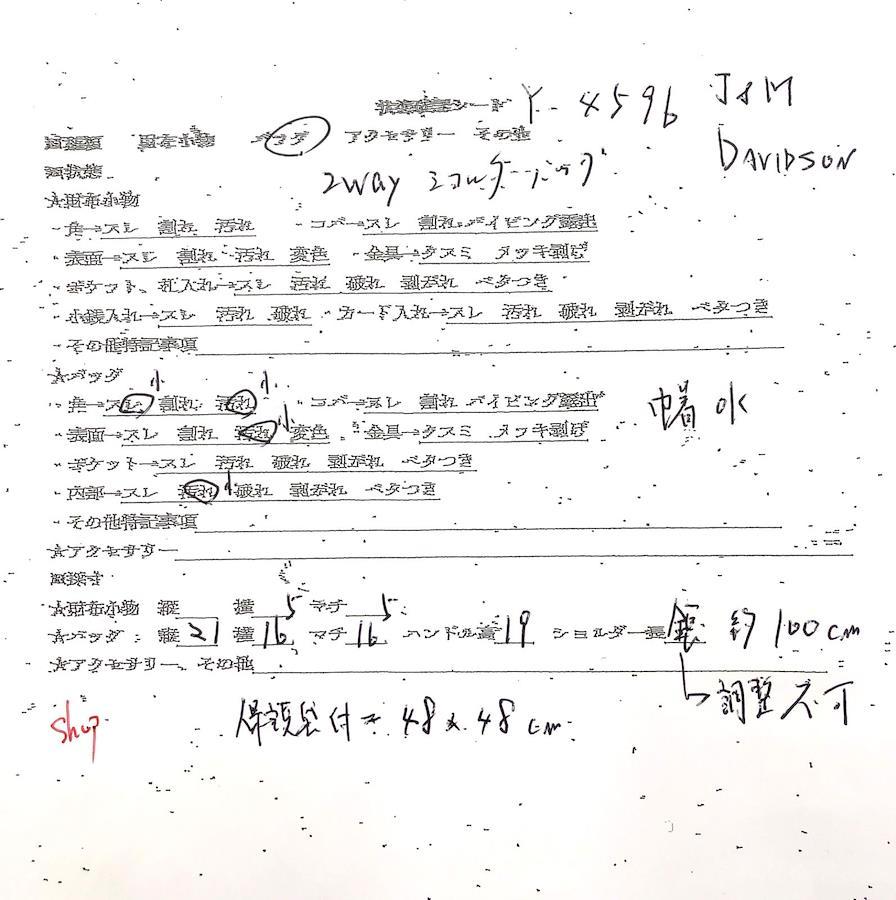 シート Y-4596 J&M
バッグ アクセサリー その他 DAVIDSON
2way
・角→スレ 割れ 汚れ ・コバ→スレ 割れ パイピング露出
・表面→スレ 割れ 汚れ 変色 ・金具→クスミ メッキ剥げ
・ポケット、札入れ→スレ 汚れ 破れ 剥がれ ベタつき
・小銭入れ→スレ 汚れ 破れ ・カード入れ→スレ 汚れ 破れ 剥がれ ベタつき
・その他特記事項
★バッグ
小 小
・角→スレ 割れ 汚れ ・コバ→スレ 割れ パイピング露出
小
・表面→スレ 割れ 汚れ 変色 ・金具→クスミ メッキ剥げ
・ポケット→スレ 汚れ 破れ 剥がれ ベタつき
・内部→スレ 汚れ 小 破れ 剥がれ ベタつき
・その他特記事項
★アクセサリー
★財布小物 縦 横 5 マチ 5
★バッグ：縦 21 横 16 マチ 16 ハンドル高 19 ショルダー長 約100cm
★アクセサリー、その他
調整不可
shop 48×48cm